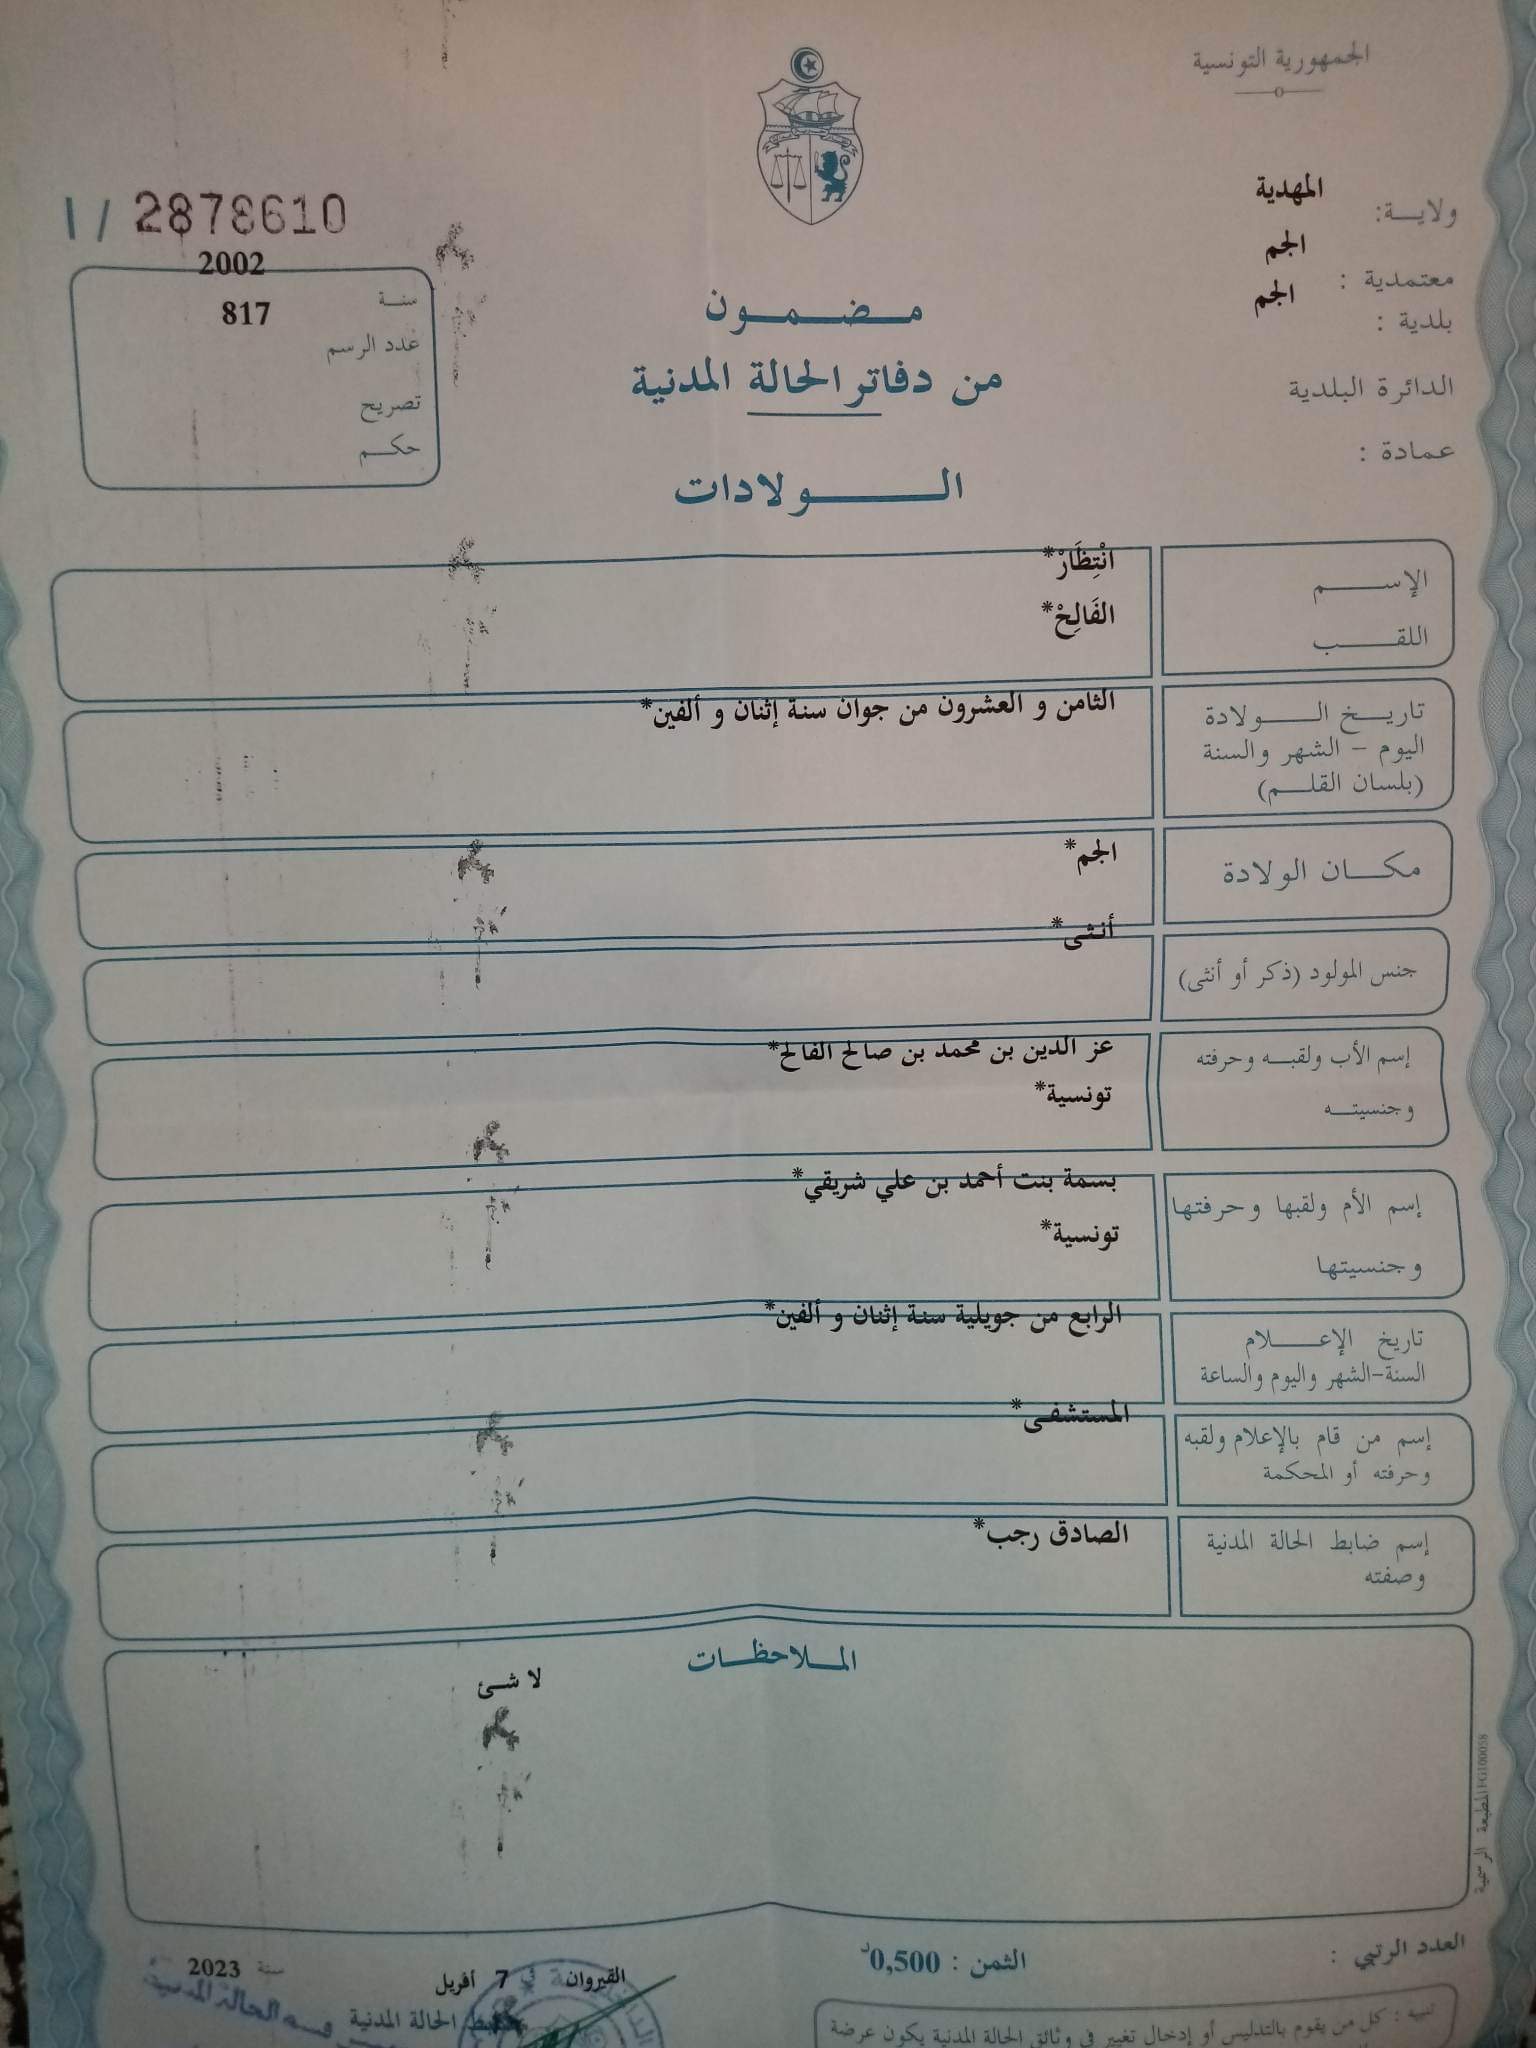 الجمهورية التونسية
ولايـة: المهدية
معتمدية : الجم
بلدية : الجم
الدائرة البلدية
عمادة :
I / 2878610
سنـة 2002
عدد الرسم 817
تصريح
حكـم
مـضـمـون
من دفاتر الحالة المدنية
الـولادات
الإسـم انْتِظَارْ*
اللقـب الفَالِحْ*
تاريـخ الـولادة الثامن و العشرون من جوان سنة إثنان و ألفين*
اليوم - الشهر والسنة
(بلسان القلـم)
مكـان الولادة الجم*
جنس المولود (ذكر أو أنثى) أنثى*
إسم الأب ولقبـه وحرفته عز الدين بن محمد بن صالح الفالح*
وجنسيتـه تونسية*
إسم الأم ولقبها وحرفتها بسمة بنت أحمد بن علي شريقي*
وجنسيتها تونسية*
تاريخ الإعـلام الرابع من جويلية سنة إثنان و ألفين*
السنة-الشهر واليوم والساعة
إسم من قام بالإعلام ولقبه المستشفى*
وحرفته أو المحكمة
إسم ضابط الحالة المدنية الصادق رجب*
وصفته
المـلاحظـات
لا شئ
المطبعة الرسمية FG100058
العدد الرتبي :
الثمن : 0,500د
القيروان في 7 أفريل سنة 2023
ضابط الحالة المدنية
تنبيه : كل من يقوم بالتدليس أو إدخال تغيير في وثائق الحالة المدنية يكون عرضة